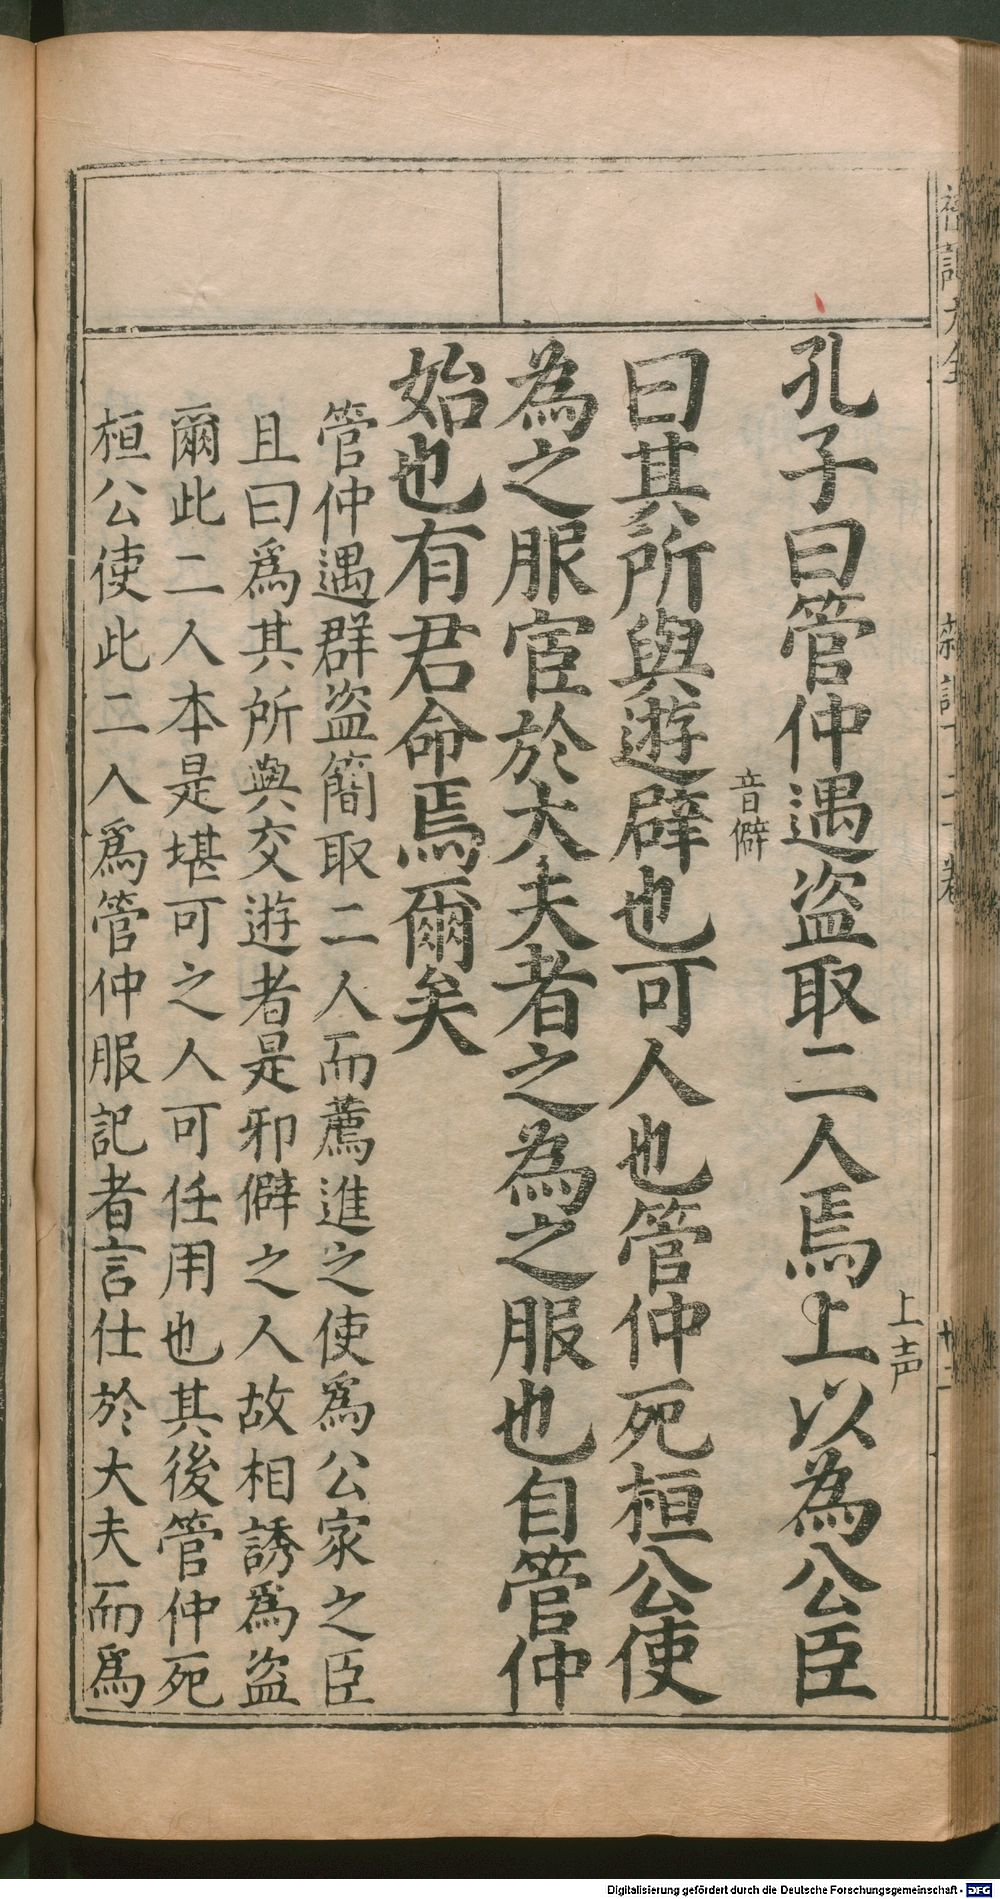 孔子曰管仲遇盗取二人焉上以為公臣
上声
曰其所與遊辟也可人也管仲死桓公使
音僻
為之服宦於大夫者之為之服也自管仲
始也有君命焉爾矣
管仲遇群盗簡取二人而薦進之使爲公家之臣
且曰爲其所與交遊者是邪僻之人故相誘爲盗
爾此二人本是堪可之人可任用也其後管仲死
桓公使此二人爲管仲服記者言仕於大夫而爲
Digitalisierung gefördert durch die Deutsche Forschungsgemeinschaft - DFG